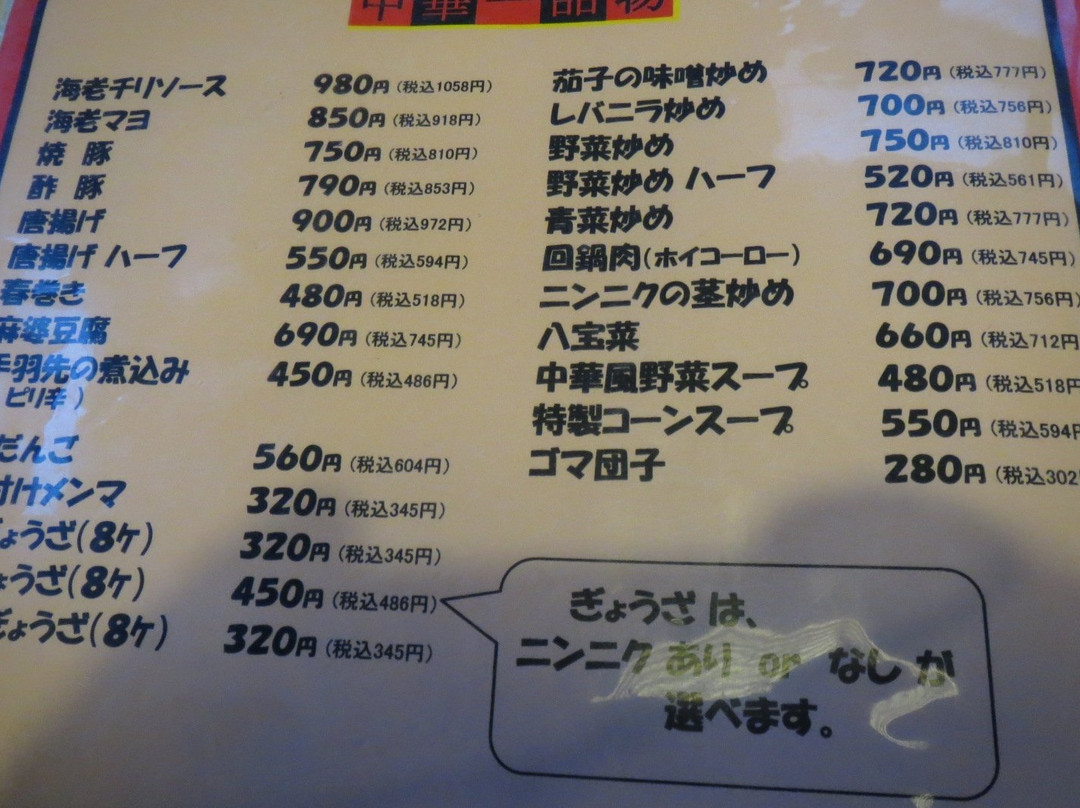 中華一品物
海老チリソース 980円(税込1058円)
海老マヨ 850円(税込918円)
焼 豚 750円(税込810円)
酢 豚 790円(税込853円)
唐揚げ 900円(税込972円)
唐揚げ ハーフ 550円(税込594円)
春巻き 480円(税込518円)
麻婆豆腐 690円(税込745円)
手羽先の煮込み 450円(税込486円)
ピリ辛)
だんご 560円(税込604円)
付けメンマ 320円(税込345円)
ぎょうざ(8ケ) 320円(税込345円)
ょうざ(8ケ) 450円(税込486円)
ぎょうざ(8ケ) 320円(税込345円)
茄子の味噌炒め 720円(税込777円)
レバニラ炒め 700円(税込756円)
野菜炒め 750円(税込810円)
野菜炒め ハーフ 520円(税込561円)
青菜炒め 720円(税込777円)
回鍋肉(ホイコーロー) 690円(税込745円)
ニンニクの茎炒め 700円(税込756円)
八宝菜 660円(税込712円
中華風野菜スープ 480円(税込518円
特製コーンスープ 550円(税込594円
ゴマ団子 280円(税込302
ぎょうざ は、
ニンニク あり or なし が
選べます。